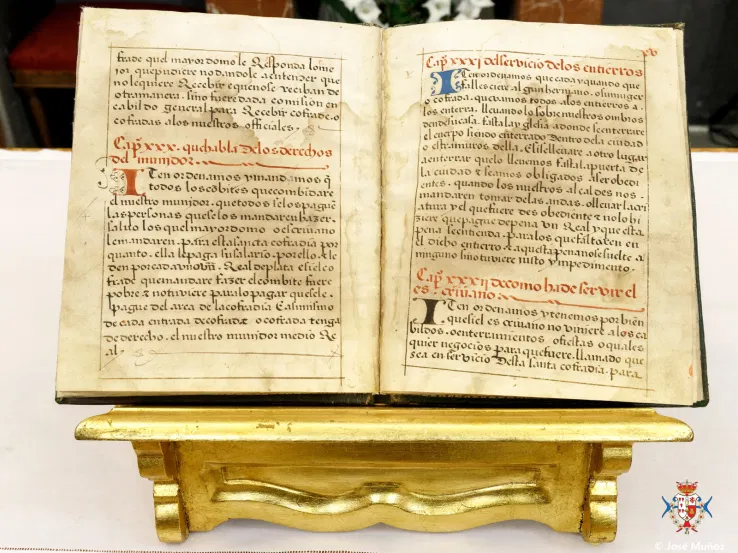 frade quel mayordomo le Responda lome
jor quepudiere nodandole aentender que
nolequiere Recebir equenose reciban de
otramanera. sino fuere dada comision en
cabildo general para Recebir cofrade. o
cofradas alos nuestros officiales.
Cap. xxx. quehabla delos derechos
del munidor.
ITen ordenamos ymandamos q
todos los cobites quecombidare
el nuestro munidor. quetodos selos pagué
las personas queselos mandaren hazer.
saluo los quel mayordomo o escriuano
lemandaren. para esta sancta cofradia por
quanto. ella lepaga su salario. por ello. e le
den por cada Real de plata e si el co
frade quemandare fazer el combite fuere
pobre. z notuviere para lo pagar quesele.
pague del arca de la cofradia E asimismo
de cada entrada de cofrade o cofrada tenga
de derecho. el nuestro munidor medio Re
al.
xv
Cap. xxxi del servicio delos entierros
ITen ordenamos que cada y quando que
falles ciere algun hermano. o su muger
o cofrada. que vamos todos alos entierros a
los enterra. lleuando lo sobre nuestros ombros
desde su casa. fasta la yglesia a donde se enterrare
el cuerpo siendo enterrado dentro dela ciudad
o estramuros della. E si se lleuare a otro lugar
a enterrar quelo llevemos fasta la puerta de
la ciudad z seamos obligados. a ser obedi
entes. quando los nuestros alcaldes nos.
mandaren tomar delas andas. o lleuar la cri
atura y el que fuere des obediente z nolo hi
ziere quepague depena vn Real y que esta
pena se entienda. para los que faltaren en
el dicho entierro z aquesta pena nose suelte a
ninguno sino tuviere iusto ympedimento.
Cap. xxxii de como ha de servir el
es. criuano.
ITen ordenamos y tenemos por bien
que si el es criuano no viniere a los ca
bildos. o enterramientos. o fiestas o quales
quier negocios para que fuere. llamado que
sea en servicio desta santa cofradia. para
© José Muñoz